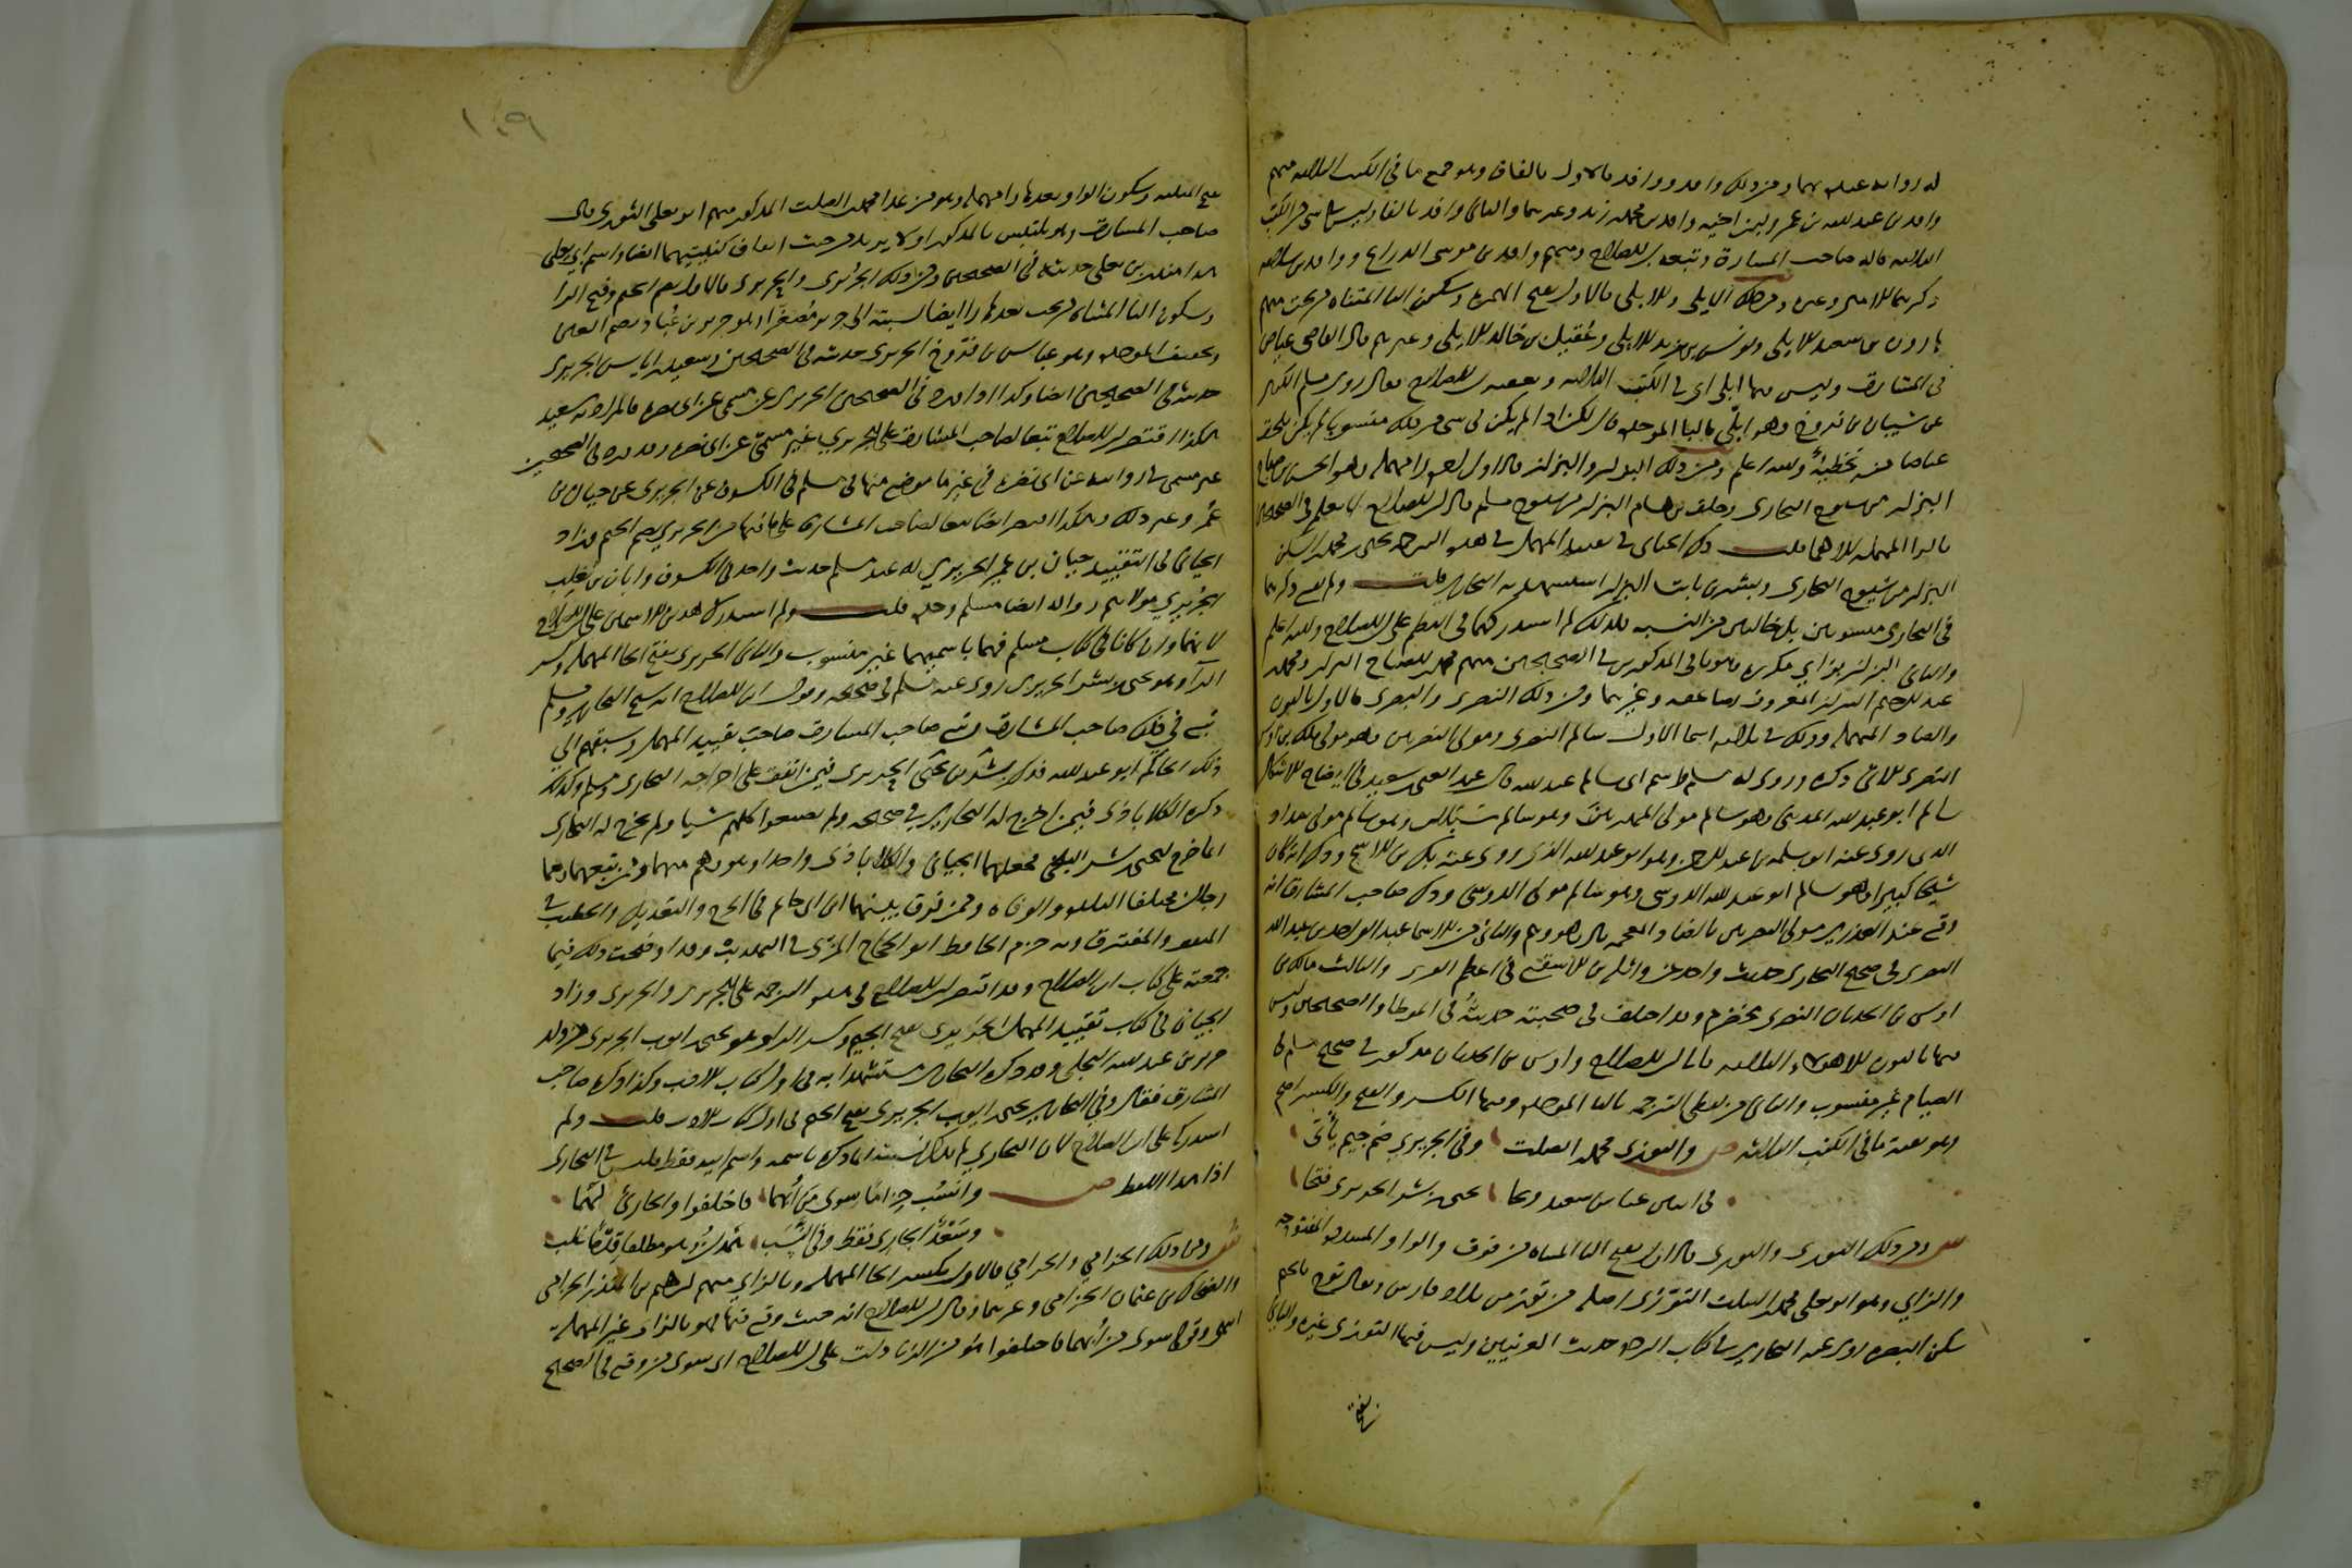 له رواية عندهما ومن ذلك واقد ووافد فالاول بالقاف وهو جميع ما في الكتب الثلاثة منهم
واقد بن عبد الله بن عمر وابن اخيه واقد بن محمد بن زيد وغيرهما والثاني وافد بالفا وليس شي في الكتب
الثلاثة قاله صاحب المشارق وتبعه ابن الصلاح ومنهم وافد بن موسى الدراع ووافد بن سلامة
ذكرهما الامير وغيره ومن ذلك الايلي والابلي فالاول بفتح الهمزة وسكون اليا المثناة من تحت منهم
هارون بن سعيد الايلي ويونس بن يزيد الايلي وعقيل بن خالد الايلي وغيرهم قال القاضي عياض
في المشارق وليس فيها ابلي اي في الكتب الثلاثة وتعقبه ابن الصلاح فقال روى مسلم الكثير
عن شيبان بن فروخ وهو ابلي بالبا الموحدة قال لكن اذا لم يكن في شي من ذلك منسوبا لم يلحق
عياضا منه تخطئة والله اعلم ومن ذلك البزار والبزاز فالاول اخره را مهملة وهو الحسن بن الصباح
البزار من شيوخ البخاري وخلف بن هشام البزار من شيوخ مسلم قال ابن الصلاح لا نعلم في الصحيحين
بالرا المهملة الا هما قلت ذكر الجياني في تقييد المهمل في هذه الترجمة يحيى بن محمد بن السكن
البزار من شيوخ البخاري وبشر بن ثابت البزار استشهد به البخاري قلت ولم يقع ذكرهما
في البخاري منسوبين بل خاليين من النسبة فلذلك لم استدركهما في النظم على ابن الصلاح والله اعلم
والثاني البزاز بزاي مكررة وهو باقي المذكورين في الصحيحين منهم محمد بن الصباح البزاز ومحمد بن
عبد الرحيم البزاز المعروف بصاعقة وغيرهما ومن ذلك النصري والبصري فالاول بالنون
والصاد المهملة وذلك في ثلاثة اسما الاول سالم النصري ومولى النصريين وهو مولى مالك بن اوس
النصري الاتي ذكره وروى له مسلم واسم ابي سالم عبد الله قال عبد الغني بن سعيد في ايضاح الاشكال
سالم ابو عبد الله المديني وهو سالم مولى المهريين وهو سالم سبلان وهو سالم مولى شداد
الذي روى عنه ابو سلمة بن عبد الرحمن وهو ابو عبد الله الذي روى عنه بكير بن الاشج وذكر انه كان
شيخا كبيرا وهو سالم ابو عبد الله الدوسي وهو سالم مولى الدوسي وذكر صاحب المشارق انه
وقع عند العذري مولى النضريين بالضاد المعجمة قال وهو وهم والثاني من الاسما عبد الواحد بن عبد الله
النصري في صحيح البخاري حديث واحد عن واثلة بن الاسقع في اعظم الفرى والثالث مالك بن
اوس بن الحدثان النصري مخضرم وقد اختلف في صحبته حديثه في الموطا والصحيحين وليس
فيها بالنون الا هولاء الثلاثة قاله ابن الصلاح واوس بن الحدثان مذكور في صحيح مسلم في
الصيام غير منسوب والثاني من لفظي الترجمة بالبا الموحدة وفيها الكسر والفتح والكسر اصح
وهو بقية ما في الكتب الثلاثة ص والتوزي محمد الصلت وفي الجريري ضم جيم يأتي
في اثنين عباس سعيد وبحا يحيى بن بشر الحريري فتحا
ش ومن ذلك التوزي والثوري فالاول بفتح التا المثناة من فوق والواو المشددة المفتوحة
والزاي وهو ابو يعلى محمد بن الصلت التوزي اصله من توز من بلاد فارس ويقال توج بالجيم
سكن البصرة روى عنه البخاري في كتاب الردة حديث العرنيين وليس فيها التوزي غيره والثاني
بفتح
١٠٩
بفتح المثلثة وسكون الواو بعدها را مهملة وهو من عدا محمد بن الصلت المذكور منهم ابو يعلى الثوري قال
صاحب المشارق وهو يلتبس بالمذكور اولا يريد من حيث اتفاق كنيتيهما ايضا واسم ابي يعلى
هذا منذر بن يعلى حديثه في الصحيحين ومن ذلك الجريري والحريري فالاول بضم الجيم وفتح الرا
وسكون اليا المثناة من تحت بعدها را ايضا نسبة الى جرير مصغرا وهو جرير بن عباد بضم العين
وتخفيف الموحدة وهو عباس بن فروخ الجريري حديثه في الصحيحين وسعيد بن اياس الجريري
حديثه في الصحيحين ايضا وكذا اذا ورد في الصحيحين الجريري غير مسمى عن ابي نضرة فالمراد به سعيد
هكذا اقتصر ابن الصلاح تبعا لصاحب المشارق على الجريري غير مسمى عن ابي نضرة وقد ورد في الصحيحين
غير مسمى في روايته عن ابي نضرة في غير ما موضع منها في مسلم في الكسوف عن الجريري عن حيان بن
عمير وغير ذلك وهكذا اقتصر ايضا تبعا لصاحب المشارق على ما فيهما من الجريري بضم الجيم وزاد
الجياني في التقييد حيان بن عمير الجريري له عند مسلم حديث واحد في الكسوف وابان بن تغلب
الجريري مولاهم روى له ايضا مسلم وحده قلت ولم استدرك هذين الاسمين على ابن الصلاح
لانهما وان كانا في كتاب مسلم فهما باسميهما غير منسوبين والثاني الحريري بفتح الحا المهملة وكسر
الرا وهو يحيى بن بشر الحريري روى عنه مسلم في صحيحه وقول ابن الصلاح انه شيخ البخاري ومسلم
تبع في ذلك صاحب المشارق وتبع صاحب المشارق صاحب تقييد المهمل وسبقهم الى
ذلك الحاكم ابو عبد الله فذكر بشر بن يحيى الحريري فيمن اتفق على اخراجه البخاري ومسلم وكذلك
ذكره الكلاباذي فيمن اخرج له البخاري في صحيحه ولم يصنعوا كلهم شيا ولم يخرج له البخاري
انما اخرج ليحيى بن بشر البلخي فجعلهما الجياني والكلاباذي واحدا وهو وهم منهما ومن تبعهما وهما
رجلان مختلفا البلدة والوفاة وممن فرق بينهما ابن ابي حاتم في الجرح والتعديل والخطيب في
المتفق والمفترق وبه جزم الحافظ ابو الحجاج المزي في التهذيب وقد اوضحت ذلك فيما
جمعته على كتاب ابن الصلاح وقد اقتصر ابن الصلاح في هذه الترجمة على الجريري والحريري وزاد
الجياني في كتاب تقييد المهمل الجريري بفتح الجيم وكسر الرا وهو يحيى بن ايوب الجريري من ولد
جرير بن عبد الله البجلي وقد ذكره البخاري مستشهدا به في اول كتاب الادب وكذا ذكره صاحب
المشارق فقال وفي البخاري يحيى بن ايوب الجريري بفتح الجيم في اول كتاب الادب قلت ولم
استدركه على ابن الصلاح لان البخاري لم يذكر نسبته انما ذكره باسمه واسم ابيه فقط فليس في البخاري
اذا هذا اللفظ ص وانسب حزاما سوى من ابهما فاختلفوا والحارثي لهما
وسعد الجاري فقط وفي النسب همدان وهو مطلقا قدما غلب
ش ومن ذلك الحزامي والحرامي فالاول بكسر الحا المهملة وبالزاي منهم ابراهيم بن المنذر الحزامي
والضحاك بن عثمان الحزامي وغيرهما وقال ابن الصلاح انه حيث وقع فيها فهو بالزاي غير المهملة
انتهى وقولي سوى من ابهما فاختلفوا هو من الزيادات على ابن الصلاح اي سوى من وقع في الصحيح